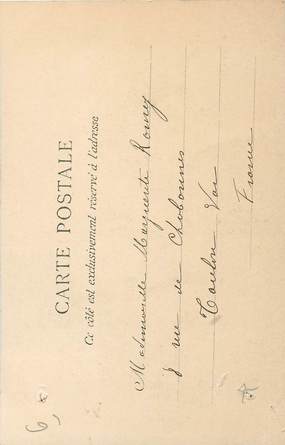 CARTE POSTALE
Ce côté est exclusivement réservé à l'adresse
Mademoiselle Marguerite
8 rue de
Toulon Var
France
6,